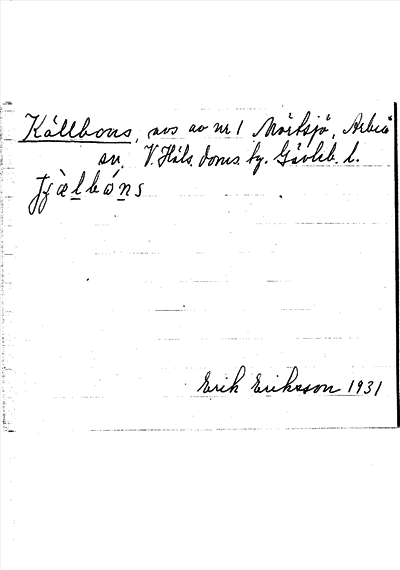 Källbons, avs av nr 1 Mörtsjö, Arbrå
sn. V. Häls. doms by. Gävleb. l.
tjæ̀lbóns
Erik Eriksson 1931